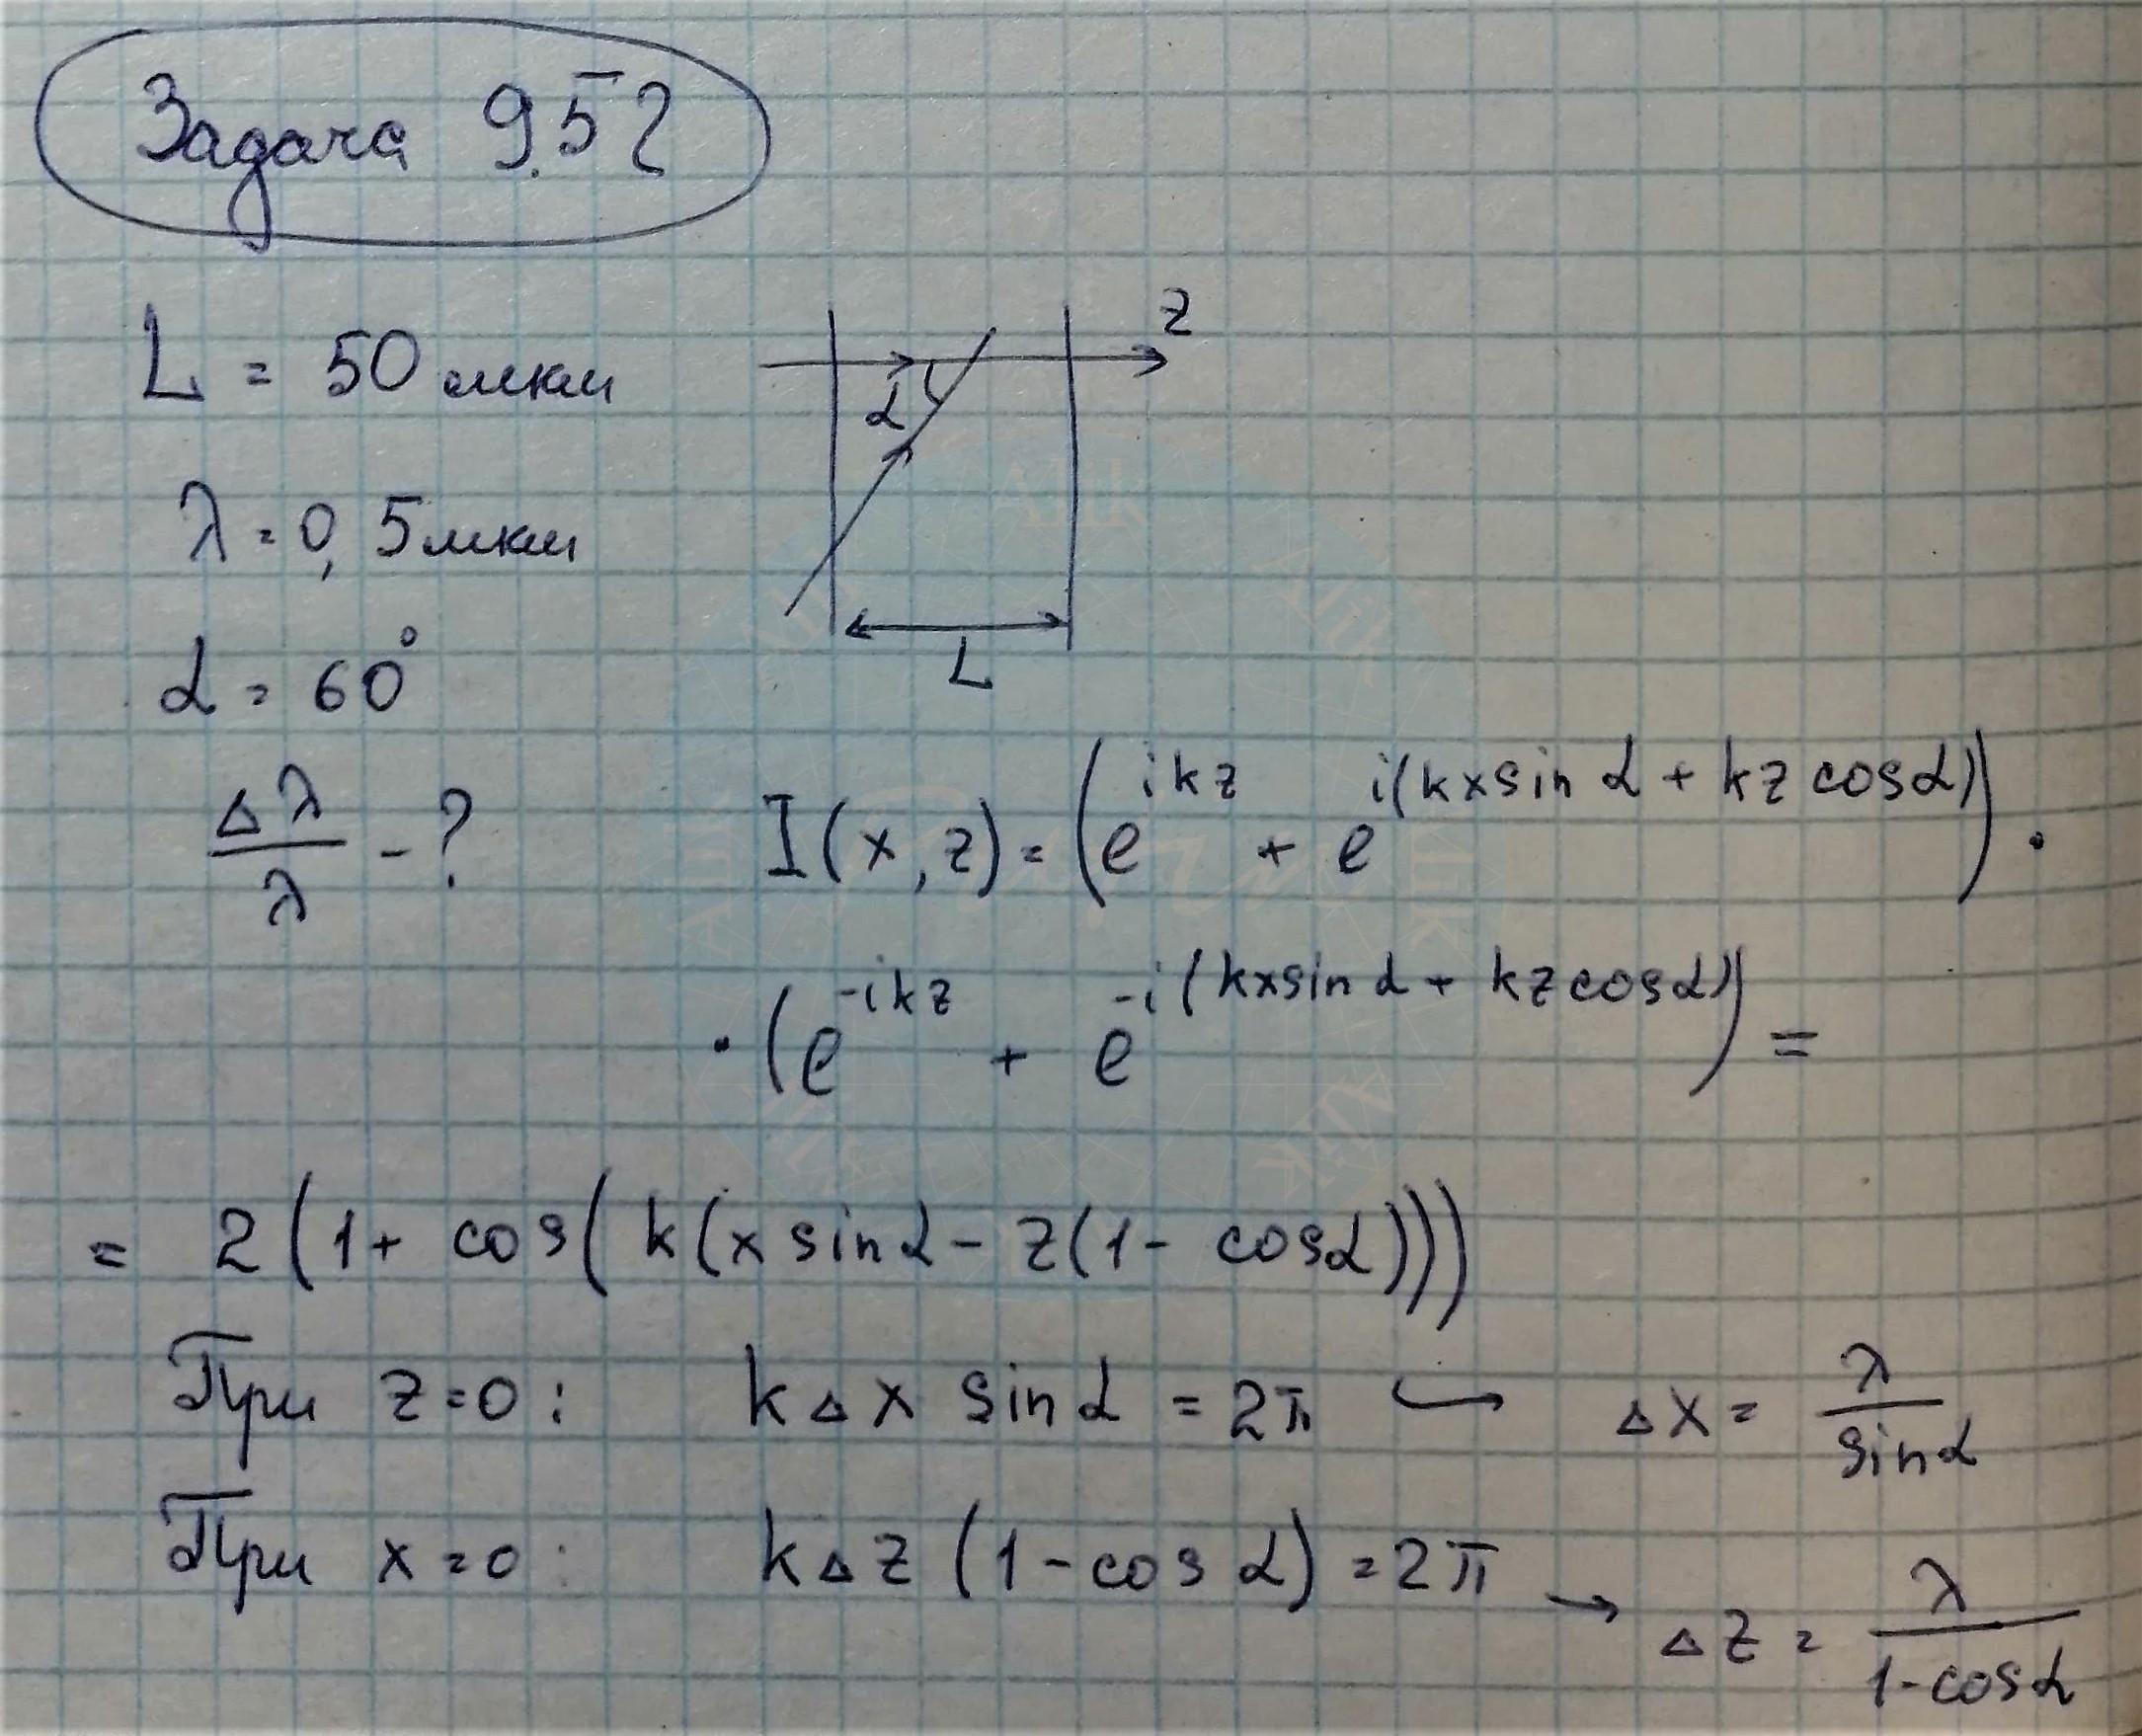 Задача 9.52
L = 50 мкм
z
α
λ = 0,5 мкм
L
α = 60°
Δλ/λ - ?
I(x, z) = (e^{ikz} + e^{i(kx sin α + kz cos α)}) ·
· (e^{-ikz} + e^{-i(kx sin α + kz cos α)}) =
= 2(1 + cos(k(x sin α - z(1 - cos α))))
При z = 0 : kΔx sin α = 2π → Δx = λ/sin α
При x = 0 : kΔz (1 - cos α) = 2π → Δz = λ/(1 - cos α)